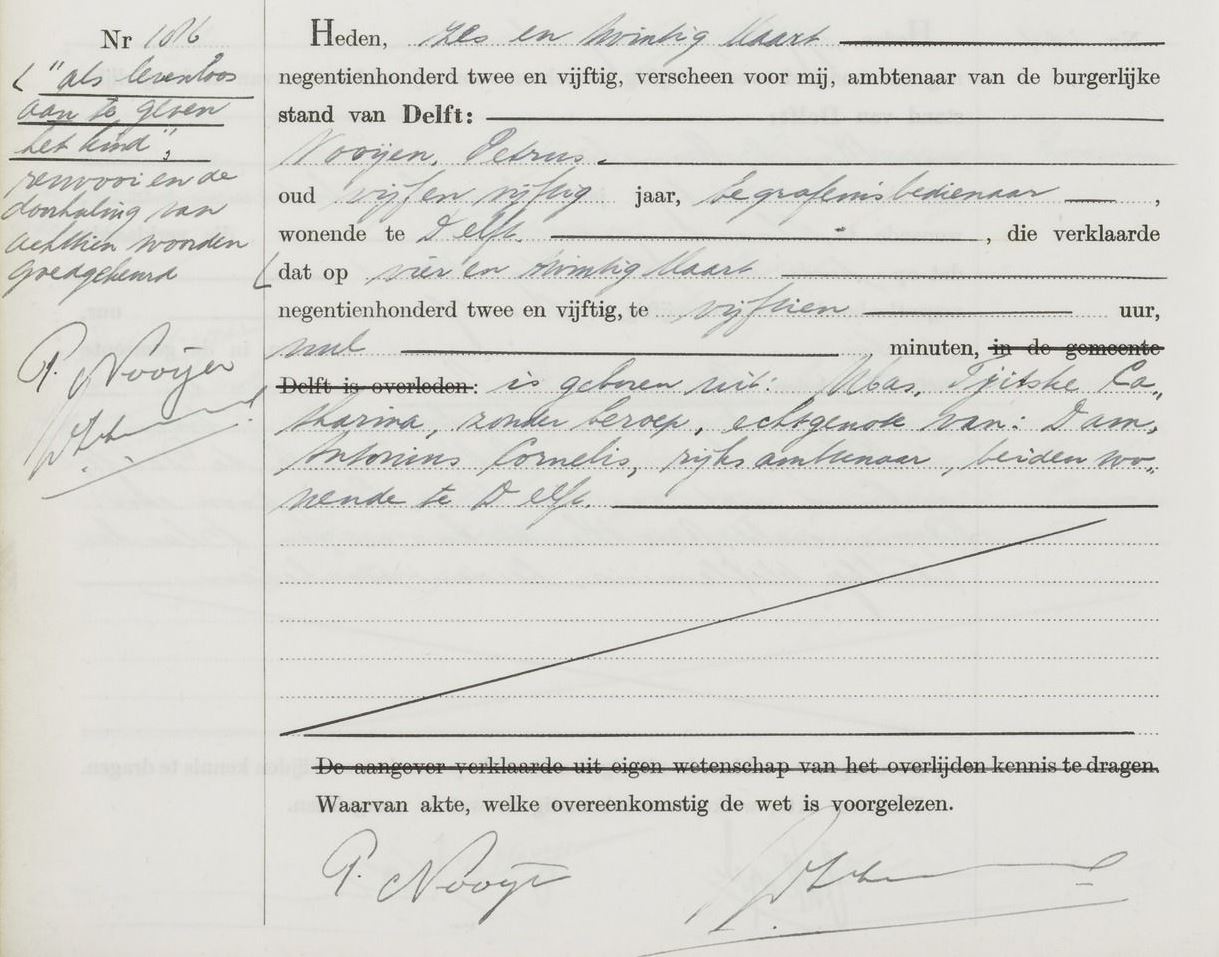 Nr 186
"als levenloos
aan te geven
het kind",
renvooi en de
doorhaling van
achttien woorden
goedgekeurd
P. Nooyen
Heden, zes en twintig Maart
negentienhonderd twee en vijftig, verscheen voor mij, ambtenaar van de burgerlijke
stand van Delft:
Nooijen, Petrus.
oud vijf en vijftig jaar, begrafenisbedienaar ,
wonende te Delft. , die verklaarde
dat op vier en twintig Maart
negentienhonderd twee en vijftig, te vijftien uur,
nul minuten, in de gemeente
Delft is overleden: is geboren uit: Ubas, Tjitske Ca„
tharina, zonder beroep, echtgenote van: Dam,
Antonius Cornelis, rijksambtenaar, beiden wo„
nende te Delft.
De aangever verklaarde uit eigen wetenschap van het overlijden kennis te dragen.
Waarvan akte, welke overeenkomstig de wet is voorgelezen.
P. Nooyen